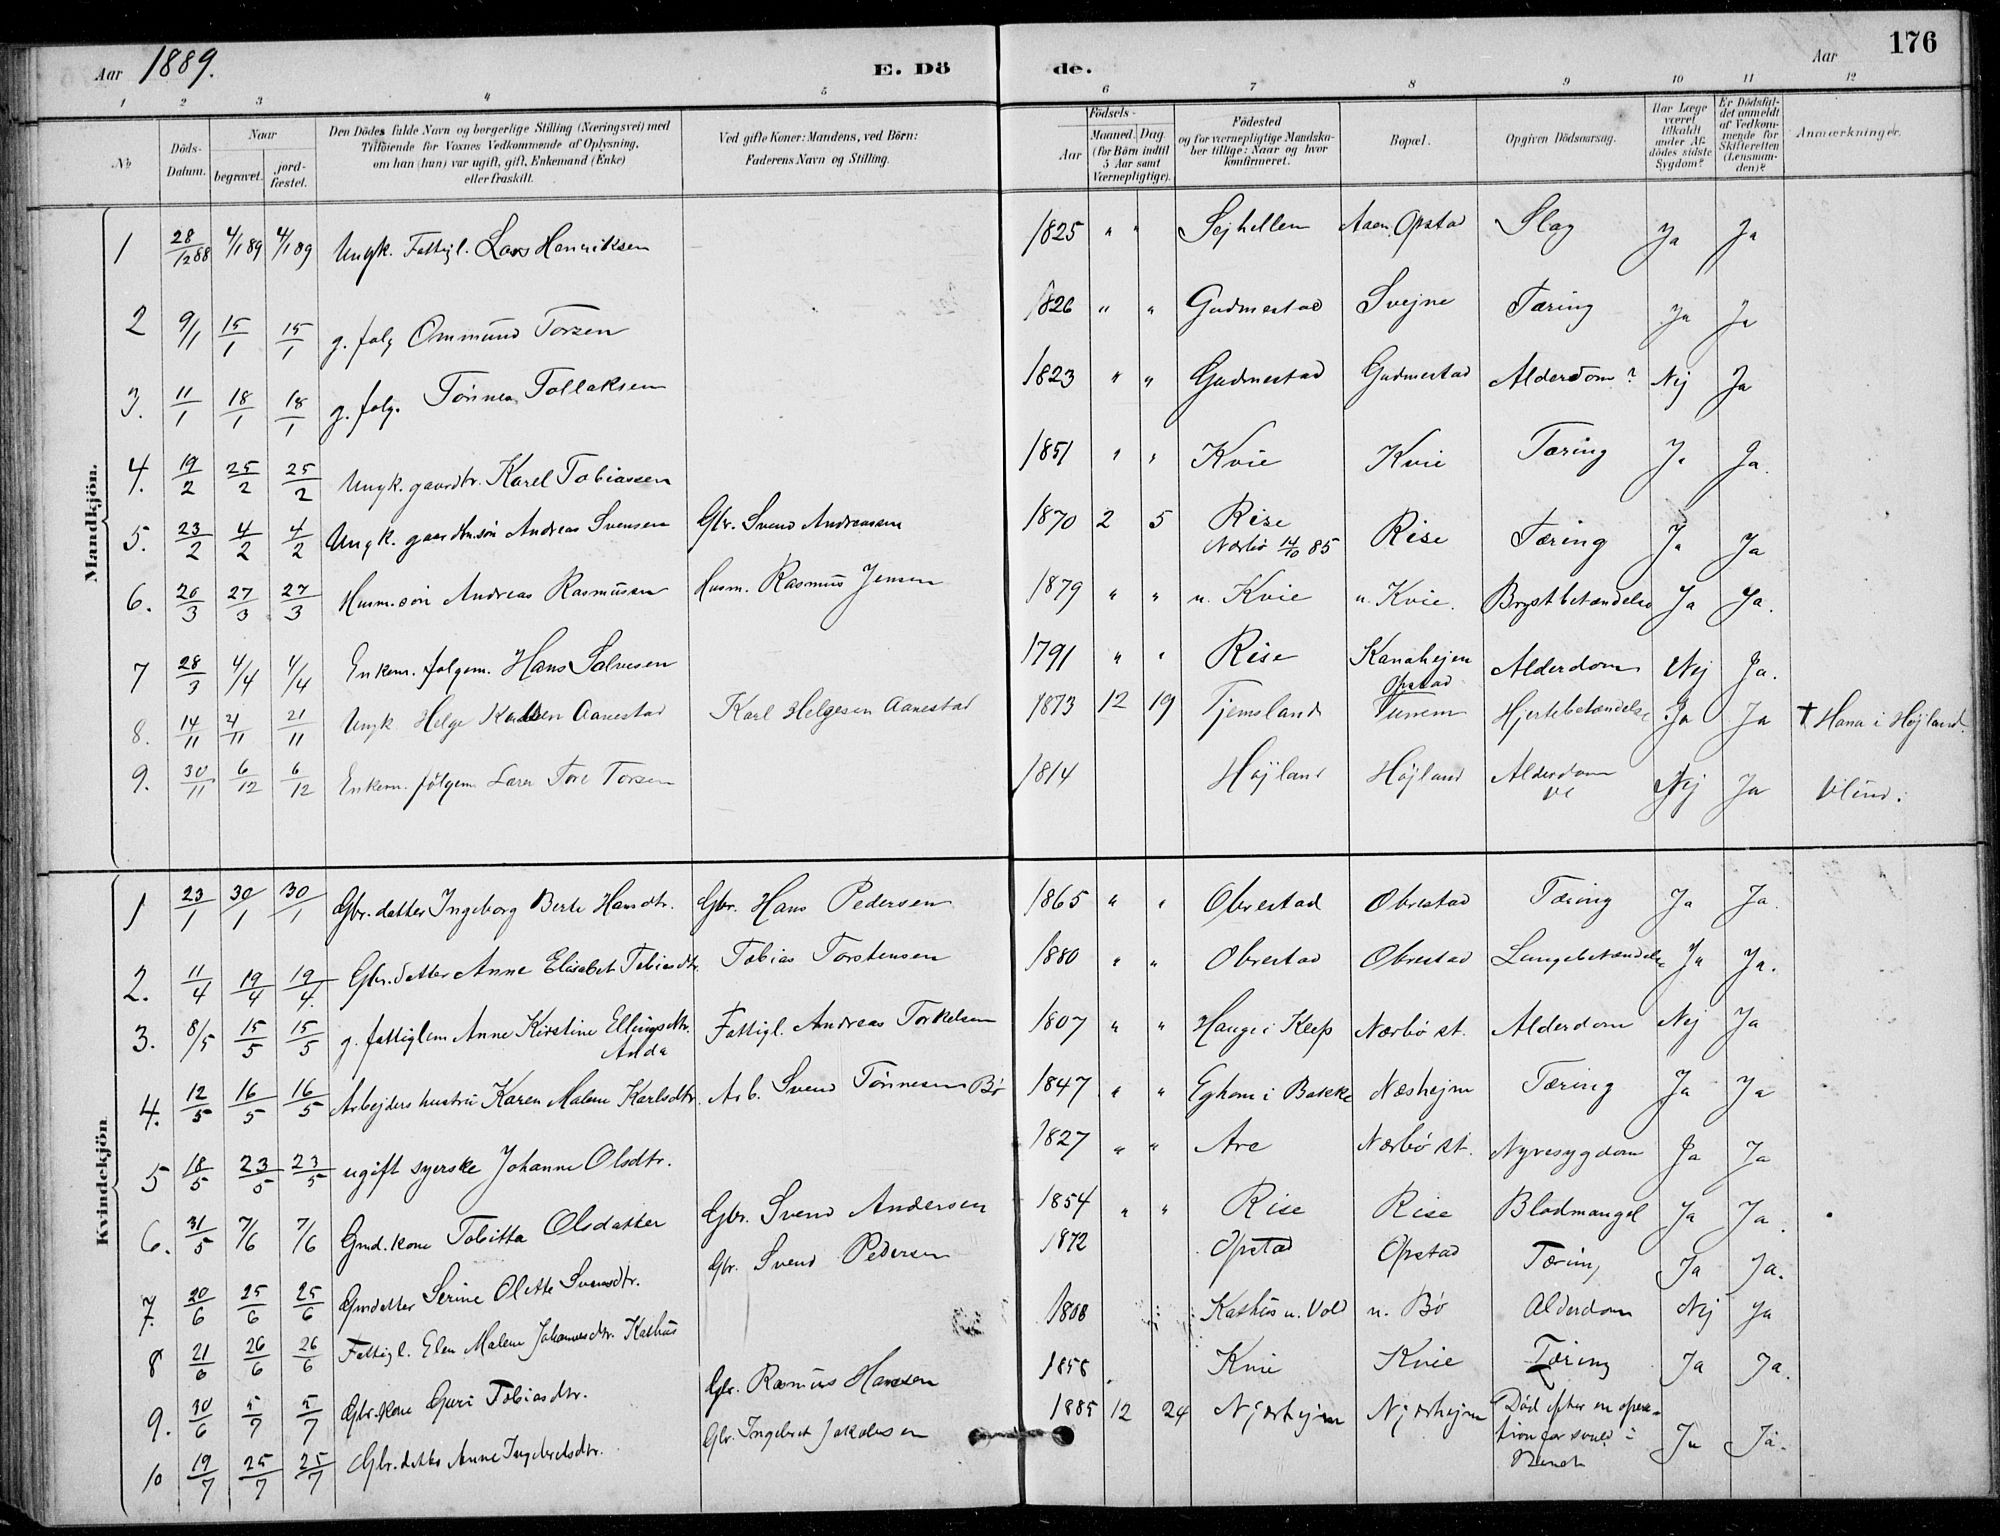 Aar 1889.
E. Dö
de.
Aar
176
1 2 3 4 5 6 7 8 9 10 11 12
No
Döds-Datum.
Naar
begravet. jord-fæstet.
Den Dödes fulde Navn og borgerlige Stilling (Næringsvei) med
Tilföiende for Voxnes Vedkommende af Oplysning,
om han (hun) var ugift, gift, Enkemand (Enke)
eller fraskilt.
Ved gifte Koner: Mandens, ved Börn:
Faderens Navn og Stilling.
Födsels-
Aar
Maaned. Dag.
(for Börn indtil
5 Aar samt
Værnepligtige).
Födested
og for værnepligtige Mandska-
ber tillige: Naar og hvor
konfirmeret.
Bopæl.
Opgiven Dödsaarsag.
Har Læge
været
tilkaldt
under Af-
dödes sidste
Sygdom?
Er Dödsfal-
det anmeldt
af Vedkom-
mende for
Skifteretten
(Lensman-
den)?
Anmærkninger.
Mandkjön.
1 28/12 88 4/1 89 4/1 89 Ungk. Fattigl. Lars Henriksen 1825 " " Sejhellem Aaen, Opstad Slag Ja Ja
2 9/1 15/1 15/1 g. folg Ommund Torsen 1826 " " Gudmestad Svejne Tæring Ja Ja
3. 11/1 18/1 18/1 g. folg. Tönnes Tollaksen 1823 " " Gudmestad Gudmestad Alderdom? Nej Ja
4. 19/2 25/2 25/2 Ungk. gaardbr. Karel Tobiassen 1851 " " Kvie Kvie Tæring Ja Ja.
5. 23/2 4/2 4/2 Ungk. gaardbr.sön Andreas Svensen Gbr. Svend Andreassen 1870 2 5 Rise Rise Tæring Ja Ja
Nærbö 14/10 85
6. 20/3 27/3 27/3 Husm.sön Andreas Rasmussen Husm. Rasmus Jensen 1879 " " u. Kvie u. Kvie. Brystbetændelse Ja Ja.
7 28/3 4/4 4/4 Enkem. folgem. Hans Salvesen 1791 " " Rise Kanahejen Alderdom Nej Ja.
Opstad
8. 14/11 21/11 21/11 Ungk Helge Karlsen Aanestad Karl Helgesen Aanestad 1873 12 19 Tjemsland Tunem Hjertebetændelse Ja Ja † Hana i Höjland.
9. 30/11 6/12 6/12 Enkem. fölgem Lars Tore Torsen 1814 Höjland Höjland Alderdom Nej Ja blind.
Kvindekjön
1 23/1 30/1 30/1 Gbr. datter Ingeborg Berte Hansdtr. Gbr. Hans Pedersen 1865 " " Obrestad Obrestad Tæring Ja Ja.
2. 11/4 19/4 19/4. Gbr. datter Anne Elisabet Tobiasdtr. Tobias Torstensen 1880 " " Obrestad Obrestad Lungebetændelse Ja Ja.
3. 8/5 15/5 15/5 g. fattiglem Anne Kirstine Ellingsdtr. Fattigl. Andreas Torkelsen 1807 " " Hauge i Klep Nærbö st. Alderdom Nej Ja
Anda
4. 12/5 16/5 16/5 Arbejders hustru Karen Malene Karlsdtr. Arb. Svend Tönnesen Bö 1847 " " Eghom i Bakke Næshejm Tæring Ja Ja
5 18/5 23/5 23/5 ugift syerske Johanne Olsdtr. 1827 " " Are Nærbö st. Nyresygdom Ja Ja
6. 31/5 7/6 7/6 Gmd. kone Tobitta Olsdatter Gbr. Svend Andersen 1854 " " Rise Rise Blodmangel Ja Ja.
7. 20/6 25/6 25/6 Gmdatter Serine Olette Svensdtr. Gbr. Svend Pedersen 1872 Opstad Opstad Tæring Ja Ja.
8 21/6 26/6 26/6 Fattigl. Elen Malene Johannesdtr. Kathus 1808 Kathus u. Vold u. Bö Alderdom Nej Ja
9. 30/6 5/7 5/7 Gbr. kone Guri Tobiasdtr. Gbr. Rasmus Hansen 1858 Kvie Kvie Tæring Ja Ja.
10 19/7 25/7 25/7 Gbr. datter Anne Ingebretsdtr. Gbr. Ingebret Jakobsen 1885 12 24 Njærhejm Njærhejm Död efter en opera-
tion for svuld i Ja Ja.